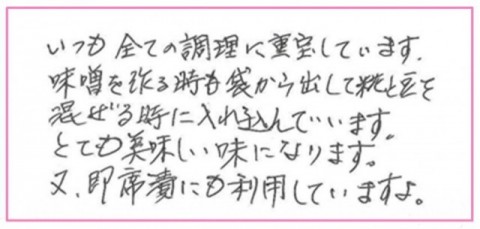 いつも全ての調理に重宝しています.
味噌を作る時も袋から出して糀と豆を
混ぜる時に入れ込んでいます。
とても美味しい味になります。
又、即席漬にも利用していますよ。